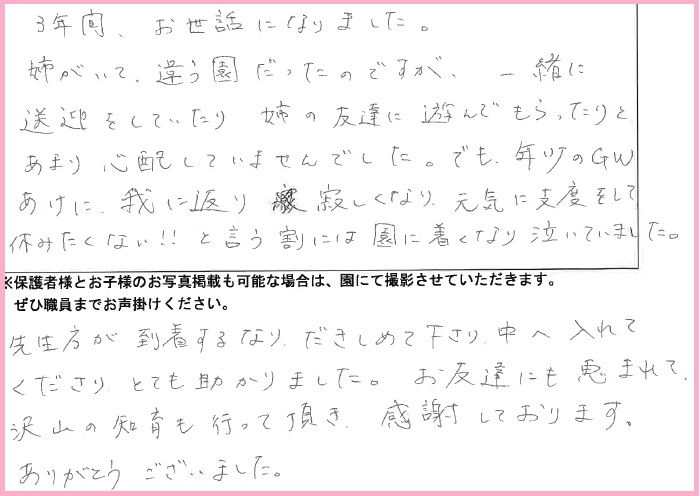 3年間、お世話になりました。
姉がいて、違う園だったのですが、一緒に
送迎をしていたり 姉の友達に遊んでもらったりと
あまり心配していませんでした。でも、年少のGW
あけに、我に返り 寂しくなり、元気に支度をして
休みたくない!! と言う割には園に着くなり泣いていました。
※保護者様とお子様のお写真掲載も可能な場合は、園にて撮影させていただきます。
ぜひ職員までお声掛けください。
先生方が到着するなり、だきしめて下さり、中へ入れて
くださり、とても助かりました。お友達にも恵まれて、
沢山の知育も行って頂き、感謝しております。
ありがとうございました。